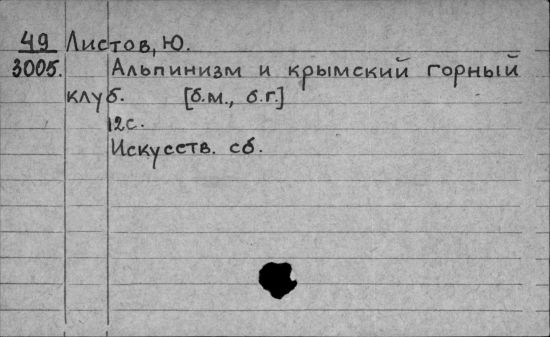 49 Листов, Ю.
3005. Альпинизм и крымский горный
клуб. [б.м., б.г.]
12с.
Искусств. сб.